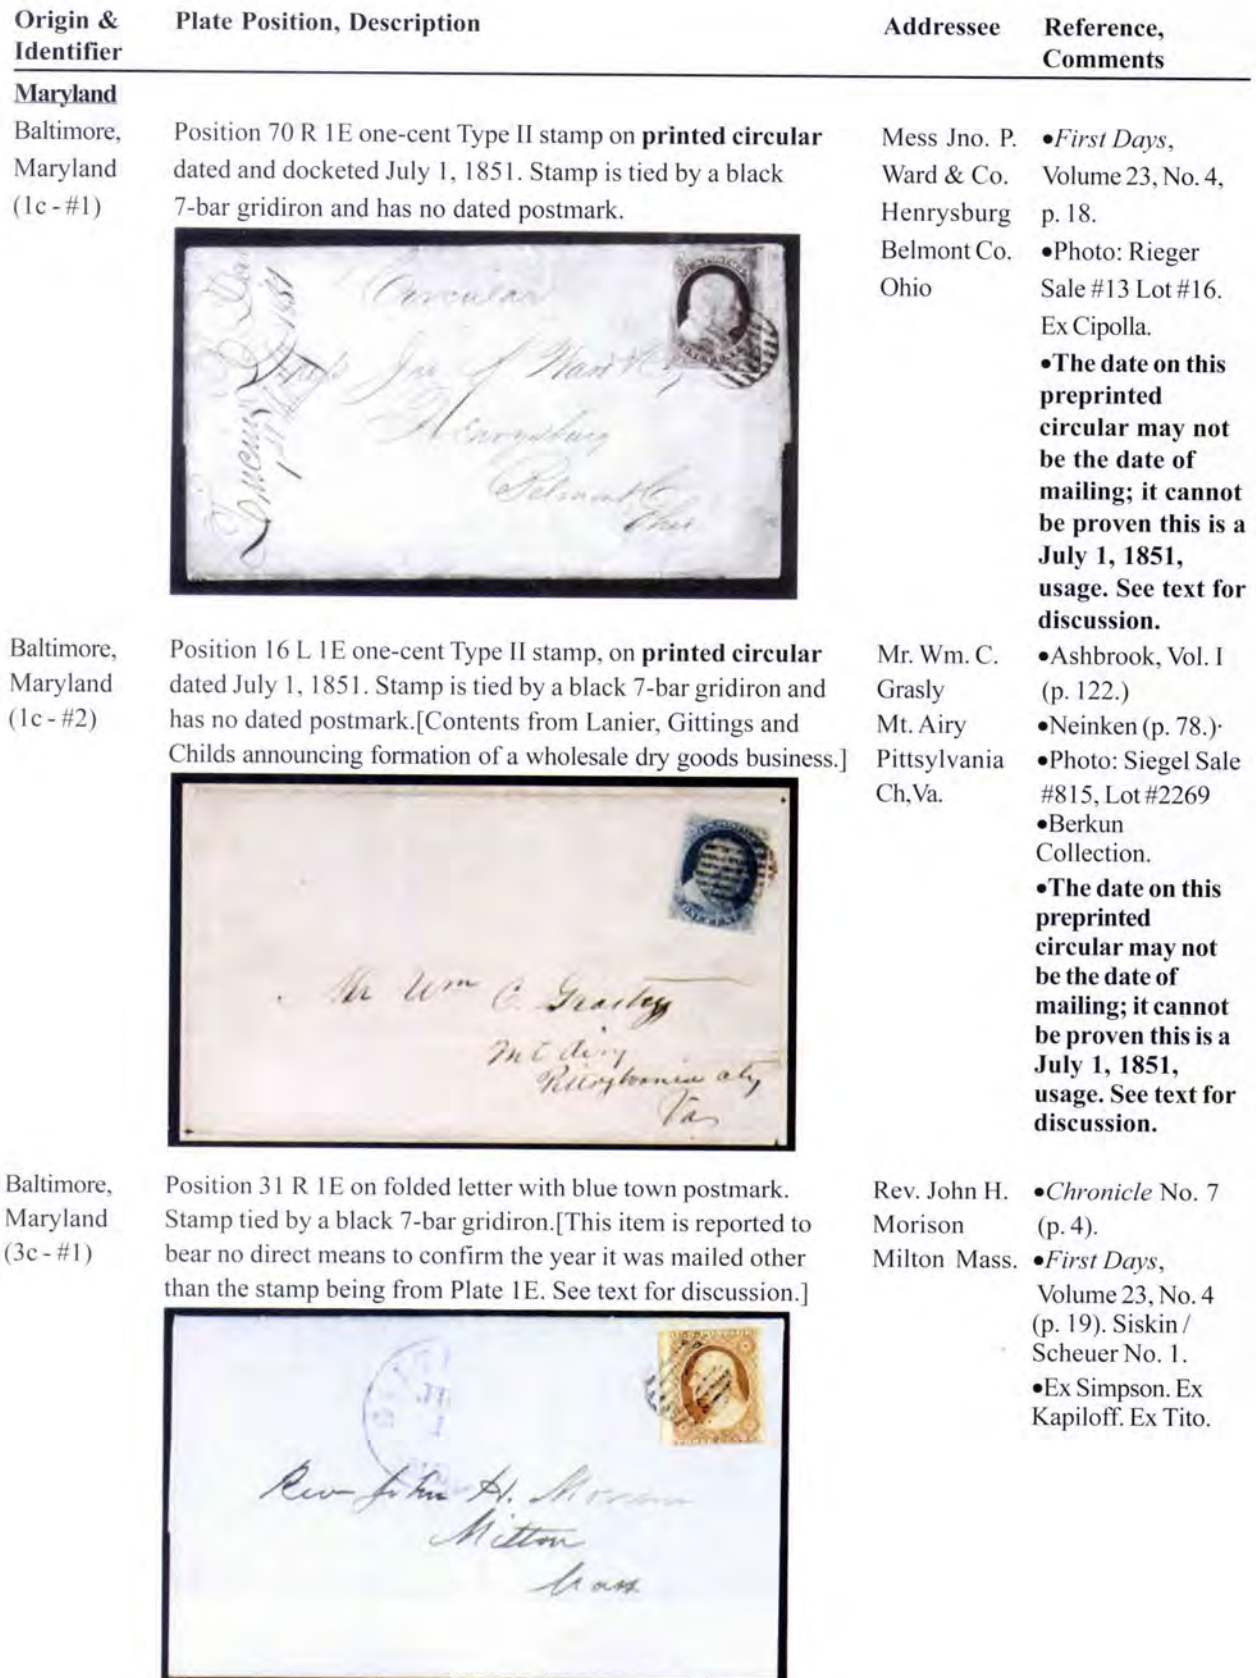 Origin & Identifier
Plate Position, Description
Addressee
Reference, Comments
Maryland
Baltimore,
Maryland
(1c - #1)
Position 70 R 1E one-cent Type II stamp on printed circular
dated and docketed July 1, 1851. Stamp is tied by a black
7-bar gridiron and has no dated postmark.
Circular
1851
Henrysburg
Belmont Co
Ohio
Mess Jno. P.
Ward & Co.
Henrysburg
Belmont Co.
Ohio
•First Days,
Volume 23, No. 4,
p. 18.
•Photo: Rieger
Sale #13 Lot #16.
Ex Cipolla.
•The date on this
preprinted
circular may not
be the date of
mailing; it cannot
be proven this is a
July 1, 1851,
usage. See text for
discussion.
Baltimore,
Maryland
(1c - #2)
Position 16 L 1E one-cent Type II stamp, on printed circular
dated July 1, 1851. Stamp is tied by a black 7-bar gridiron and
has no dated postmark.[Contents from Lanier, Gittings and
Childs announcing formation of a wholesale dry goods business.]
ONE CENT
Mr Wm C. Grasley
Mt Airy
Pittsylvania
Va
Mr. Wm. C.
Grasly
Mt. Airy
Pittsylvania
Ch,Va.
•Ashbrook, Vol. I
(p. 122.)
•Neinken (p. 78.)·
•Photo: Siegel Sale
#815, Lot #2269
•Berkun
Collection.
•The date on this
preprinted
circular may not
be the date of
mailing; it cannot
be proven this is a
July 1, 1851,
usage. See text for
discussion.
Baltimore,
Maryland
(3c - #1)
Position 31 R 1E on folded letter with blue town postmark.
Stamp tied by a black 7-bar gridiron.[This item is reported to
bear no direct means to confirm the year it was mailed other
than the stamp being from Plate 1E. See text for discussion.]
1
THREE CENTS
Rev John H. Morison
Milton
Mass
Rev. John H.
Morison
Milton Mass.
•Chronicle No. 7
(p. 4).
•First Days,
Volume 23, No. 4
(p. 19). Siskin /
Scheuer No. 1.
•Ex Simpson. Ex
Kapiloff. Ex Tito.